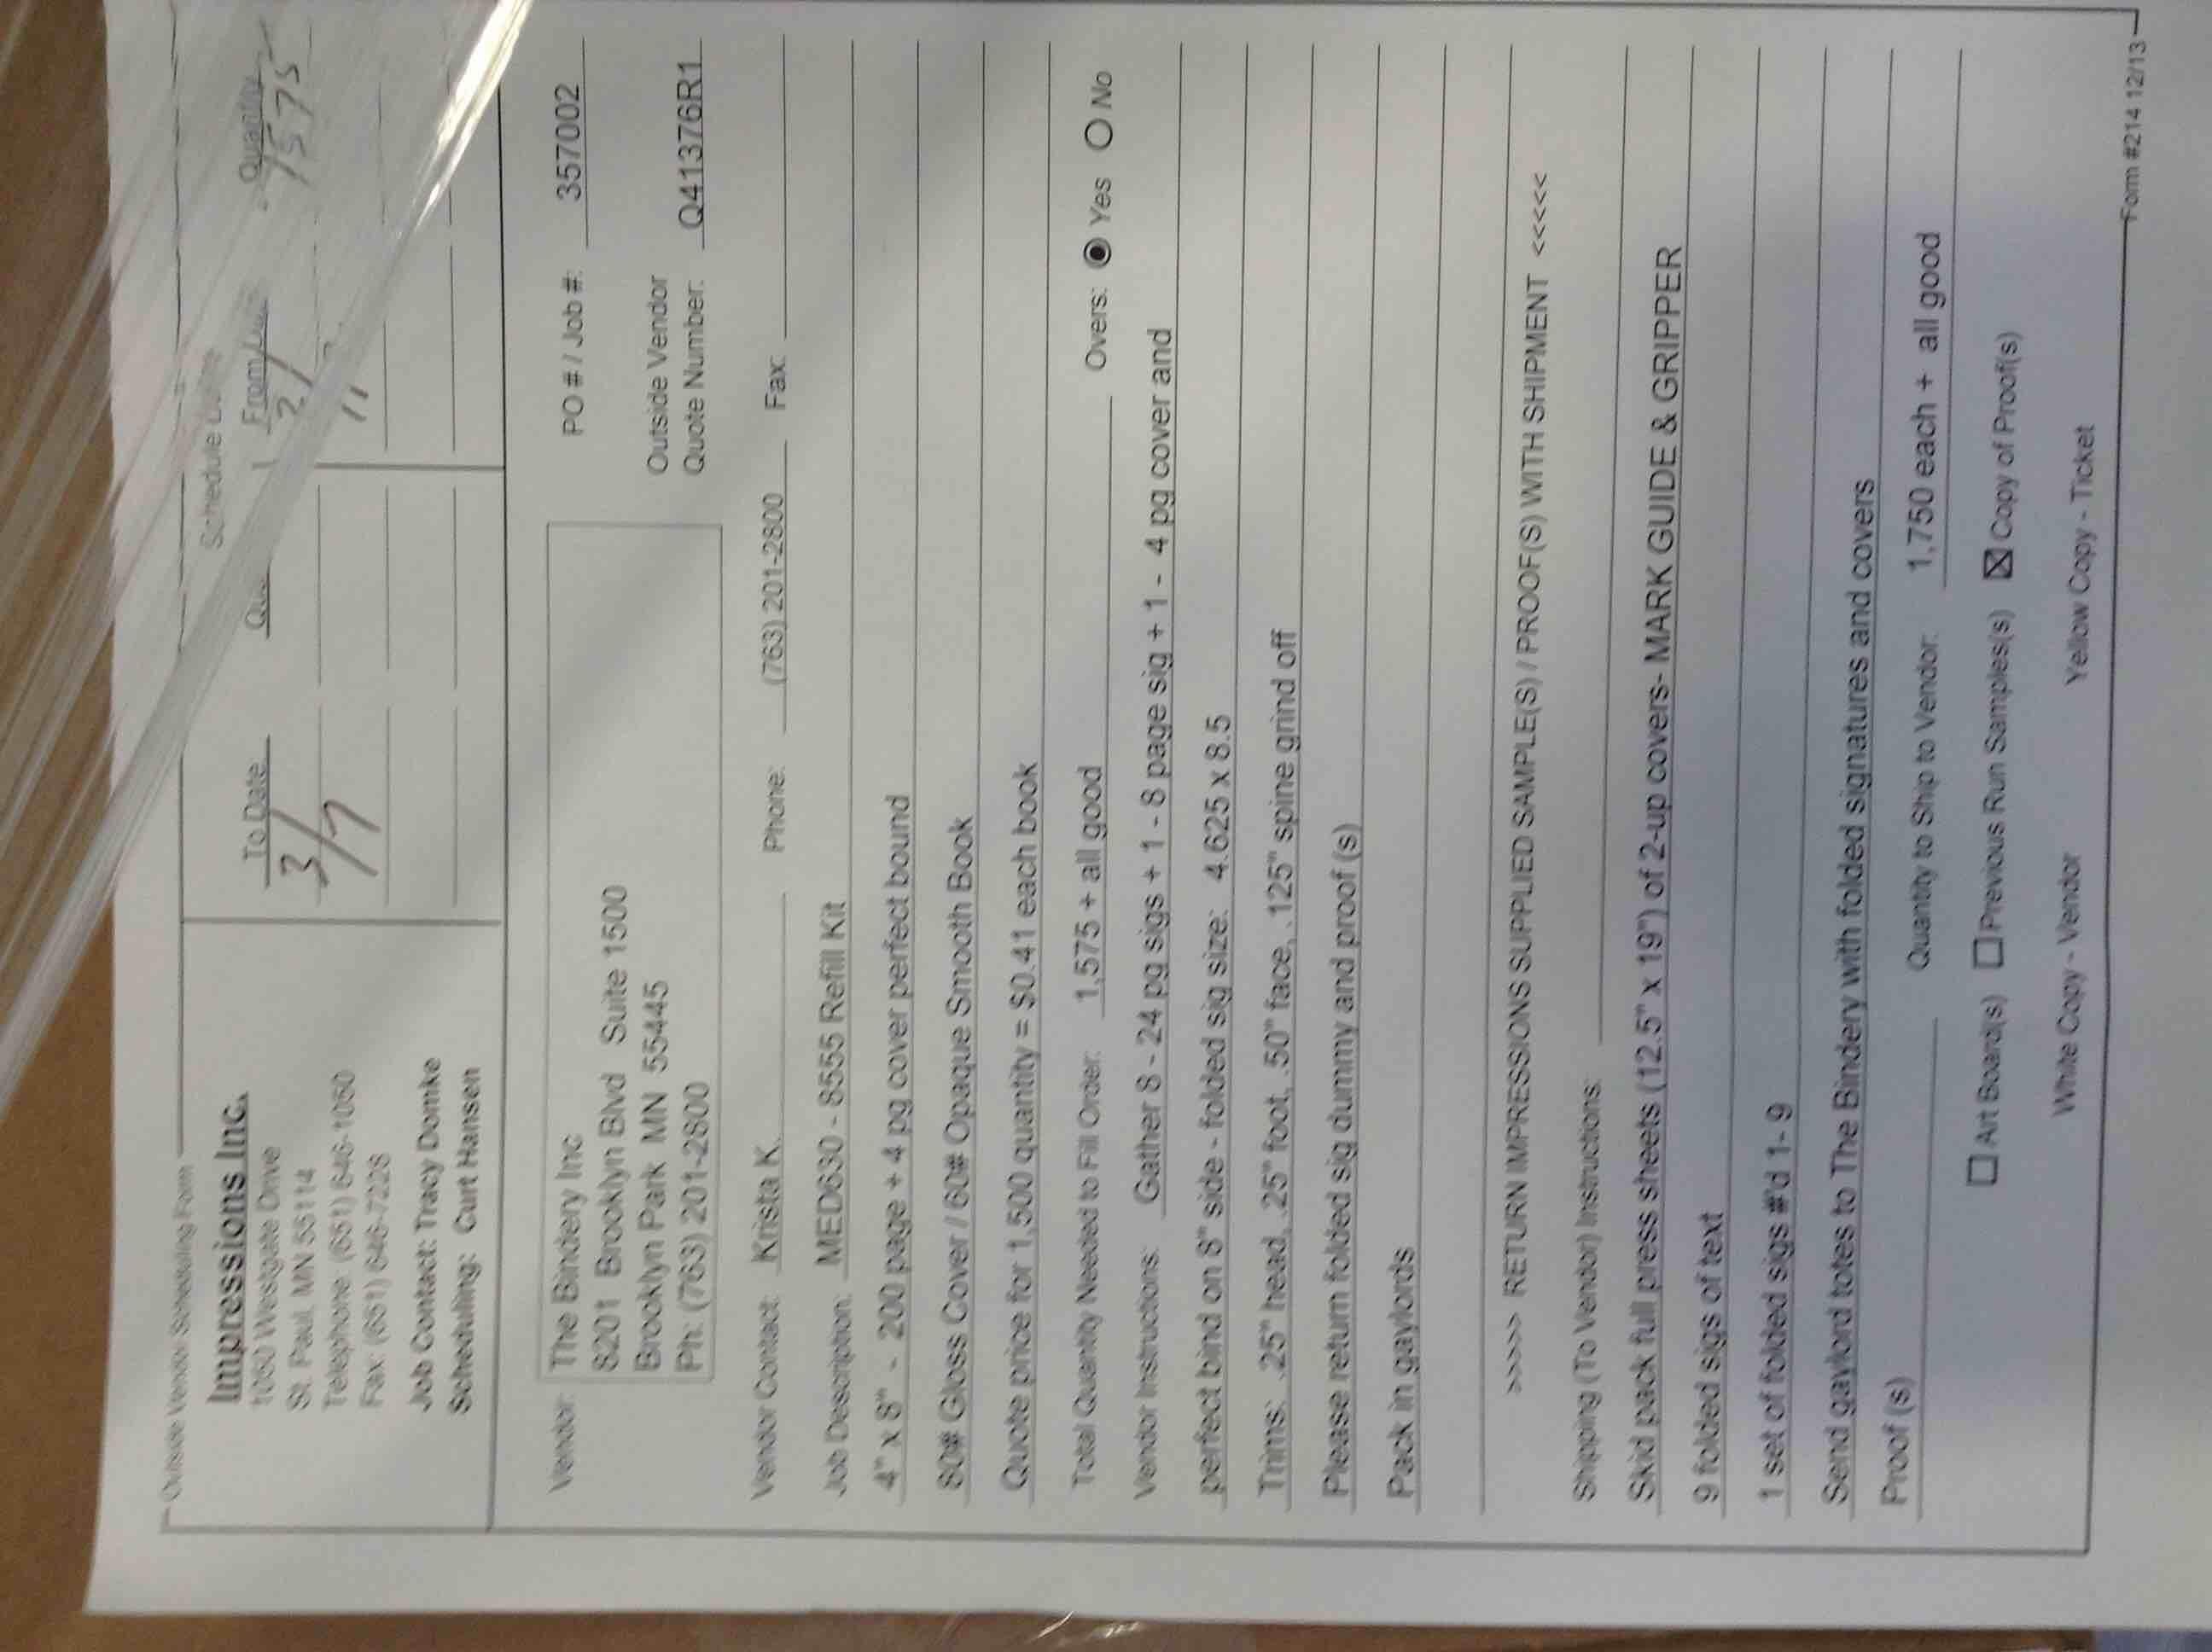 Outside Vendor Scheduling Form
Impressions Inc.
1050 Westgate Drive
St. Paul, MN 55114
Telephone: (651) 646-1050
Fax: (651) 646-7228
Job Contact: Tracy Domke
Scheduling: Curt Hansen
Schedule
To Date
From
Quantity
3/7
1575
Vendor: The Bindery Inc
8201 Brooklyn Blvd Suite 1500
Brooklyn Park MN 55445
Ph: (763) 201-2800
PO # / Job #: 357002
Outside Vendor
Quote Number: Q41376R1
Vendor Contact: Krista K. Phone: (763) 201-2800 Fax:
Job Description: MED630 - 8555 Refill Kit
4" x 8" - 200 page + 4 pg cover perfect bound
80# Gloss Cover / 60# Opaque Smooth Book
Quote price for 1,500 quantity = $0.41 each book
Total Quantity Needed to Fill Order: 1,575 + all good Overs: Yes No
Vendor Instructions: Gather 8 - 24 pg sigs + 1 - 8 page sig + 1 - 4 pg cover and
perfect bind on 8" side - folded sig size: 4.625 x 8.5
Trims: .25" head, .25" foot, .50" face, .125" spine grind off
Please return folded sig dummy and proof (s)
Pack in gaylords
>>>>> RETURN IMPRESSIONS SUPPLIED SAMPLE(S) / PROOF(S) WITH SHIPMENT <<<<<
Shipping (To Vendor) Instructions:
Skid pack full press sheets (12.5" x 19") of 2-up covers- MARK GUIDE & GRIPPER
9 folded sigs of text
1 set of folded sigs #'d 1- 9
Send gaylord totes to The Bindery with folded signatures and covers
Proof (s) Quantity to Ship to Vendor: 1,750 each + all good
Art Board(s) Previous Run Samples(s) Copy of Proof(s)
White Copy - Vendor Yellow Copy - Ticket
Form #214 12/13